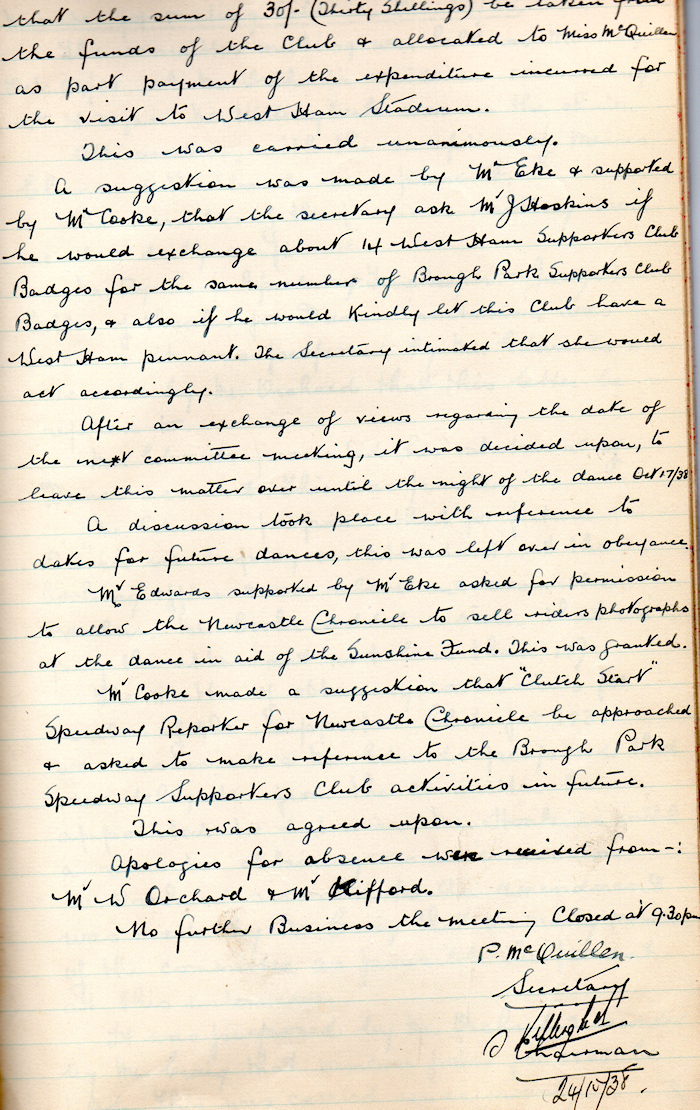 that the sum of 30/- (Thirty Shillings) be taken from
the funds of the Club & allocated to Miss McQuillen
as part payment of the expenditure incurred for
the visit to West Ham Stadium.
This was carried unanimously.
A suggestion was made by Mr Eke & supported
by Mr Cooke, that the secretary ask Mr J Hoskins if
he would exchange about 14 West Ham Supporters Club
Badges for the same number of Brough Park Supporters Club
Badges, & also if he would Kindly let this Club have a
West Ham pennant. The Secretary intimated that she would
act accordingly.
After an exchange of views regarding the date of
the next committee meeting, it was decided upon, to
leave this matter over until the night of the dance Oct 17/38
A discussion took place with reference to
dates for future dances, this was left over in obeyance.
Mr Edwards supported by Mr Eke asked for permission
to allow the Newcastle Chronicle to sell riders photographs
at the dance in aid of the Sunshine Fund. This was granted.
Mr Cooke made a suggestion that "Clutch Start"
Speedway Reporter for Newcastle Chronicle be approached
& asked to make reference to the Brough Park
Speedway Supporters Club activities in future.
This was agreed upon.
Apologies for absence were received from -:
Mr W Orchard & Mr Clifford.
No further Business the meeting Closed at 9.30pm
P. McQuillen.
Secretary
Chairman
24/10/38.